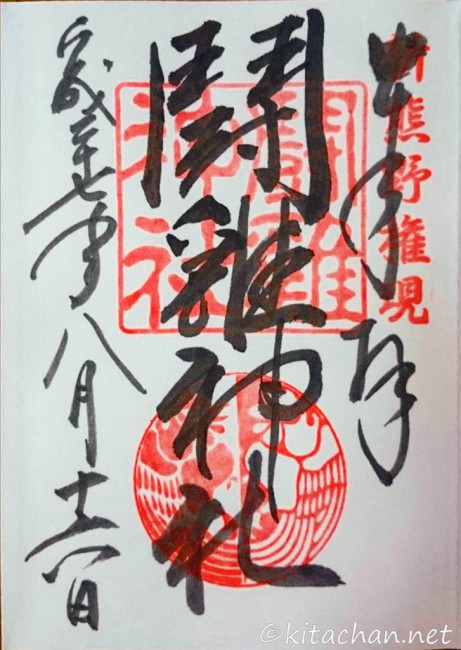 新熊野権現
奉拝
鬪雞神社
闘雞
神社
平成二十七年八月十六日
©kitachan.net